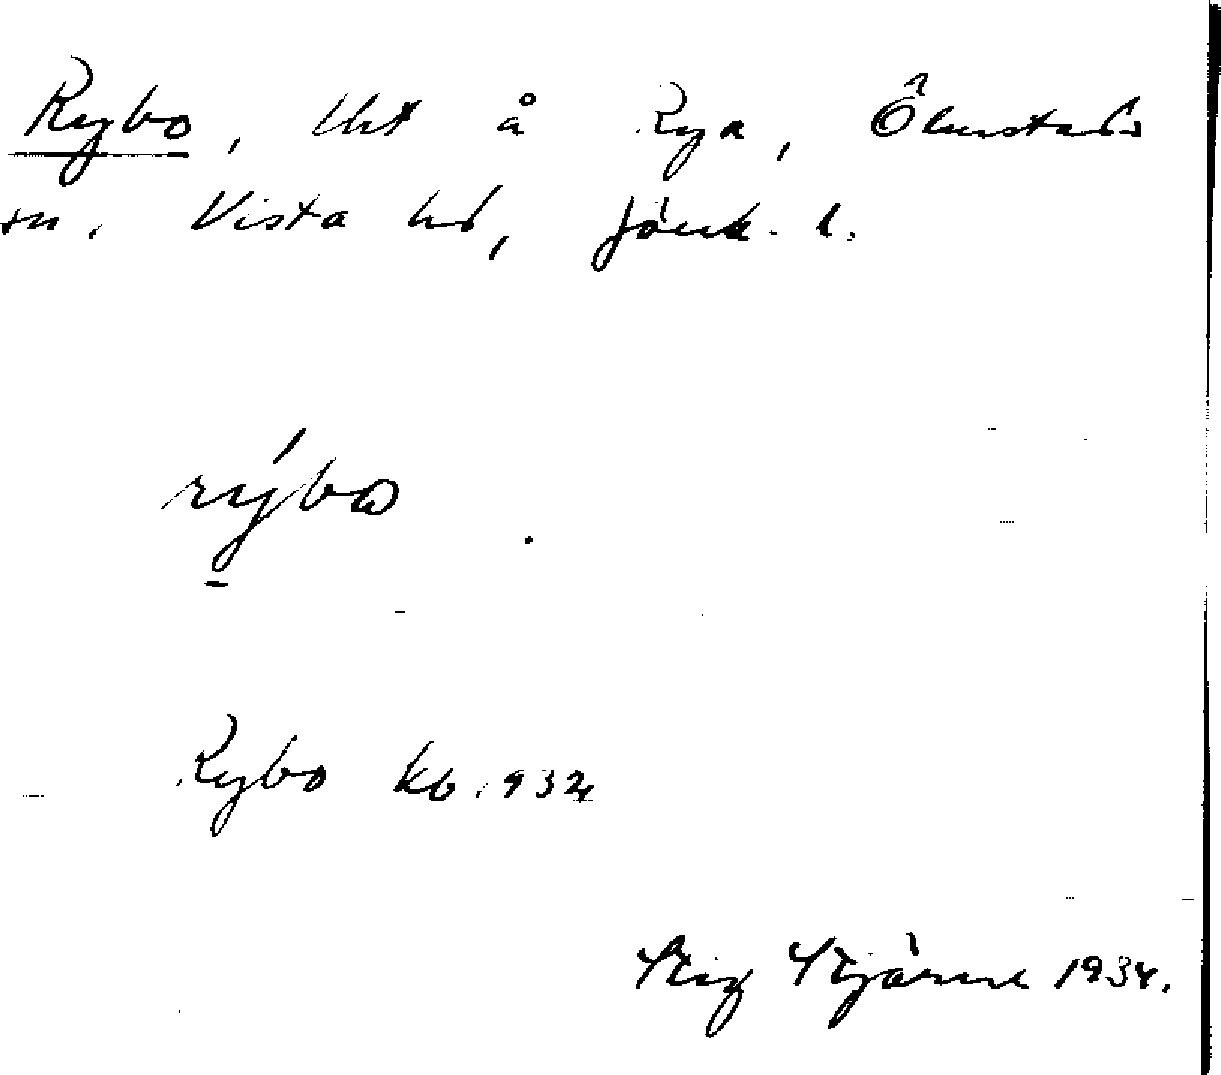 Rybo, lht å Rya, Ölmstads
sn. Vista hd, Jönk. l.
rýbω
Rybo kb. 1932
Stig Stjärne 1934.